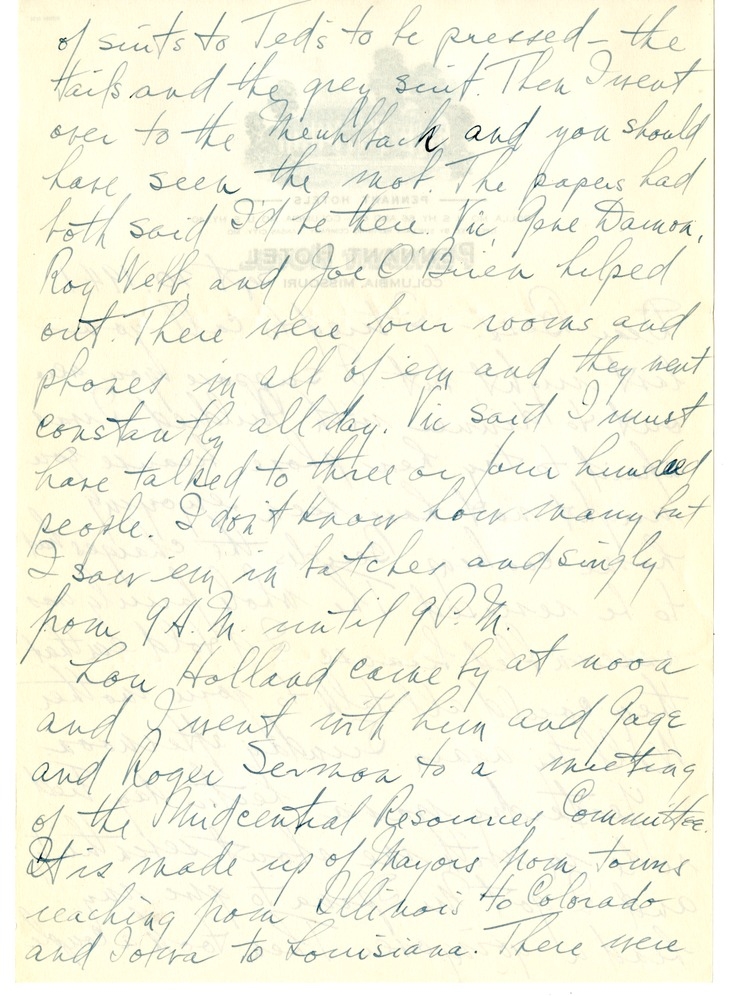 of suits to Ted's to be pressed - the
tails and the grey suit. Then I went
over to the Meuhlbach and you should
have seen the mob. The papers had
both said I'd be there. Vic, Gene Damon,
Roy Webb and Joe O'Brien helped
out. There were four rooms and
phones in all of 'em and they went
constantly all day. Vic said I must
have talked to three or four hundred
people. I don't know how many but
I saw 'em in batches and singly
from 9 A.M. until 9 P.M.
Lou Holland came by at noon
and I went with him and Gage
and Roger Sermon to a meeting
of the Midcentral Resources Committee.
It is made up of Mayors from towns
reaching from Illinois to Colorado
and Iowa to Louisiana. There were
PENNANT HOTELS
PENNANT HOTEL
COLUMBIA, MISSOURI